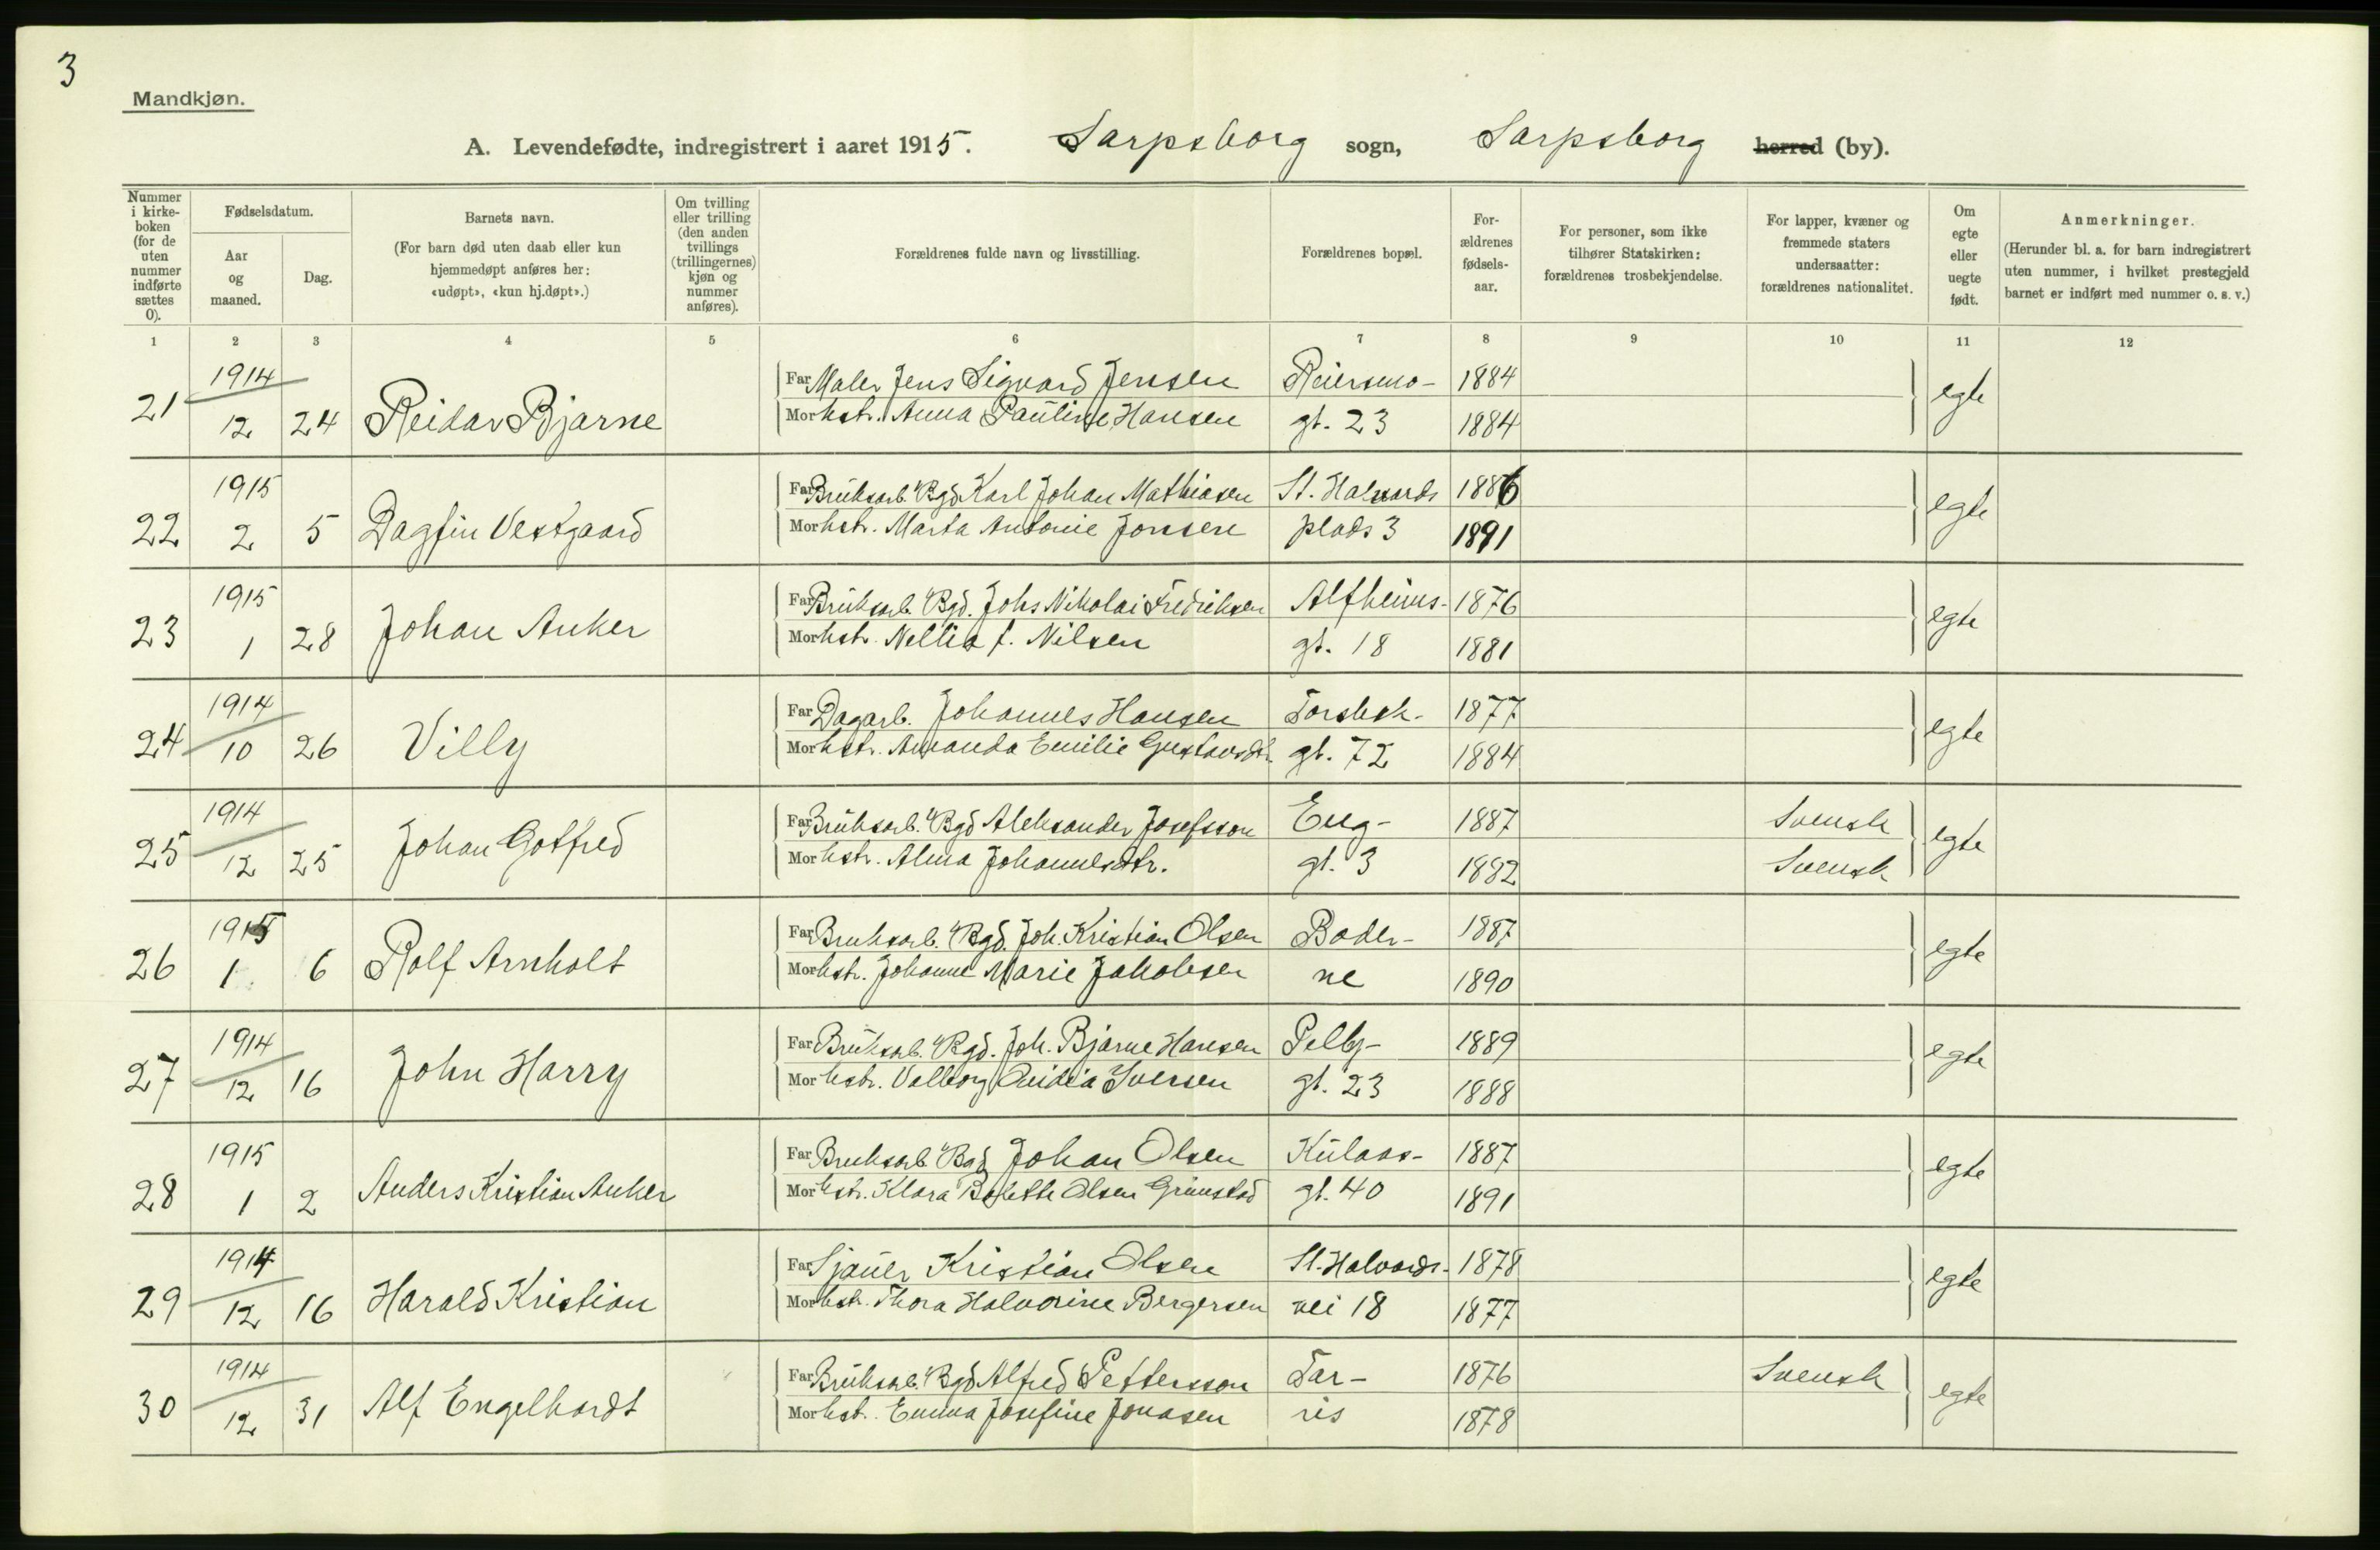 3
Mandkjøn.
A. Levendefødte, indregistrert i aaret 1915. Sarpsborg sogn, Sarpsborg herred (by).
Nummer i kirke-boken (for de uten nummer indførte sættes 0).
Fødselsdatum.
Aar og maaned.
Dag.
Barnets navn.
(For barn død uten daab eller kun hjemmedøpt anføres her: «udøpt», «kun hj.døpt».)
Om tvilling eller trilling (den anden tvillings (trillingernes) kjøn og nummer anføres).
Forældrenes fulde navn og livsstilling.
Forældrenes bopæl.
For-ældrenes fødsels-aar.
For personer, som ikke tilhører Statskirken: forældrenes trosbekjendelse.
For lapper, kvæner og fremmede staters undersaatter: forældrenes nationalitet.
Om egte eller uegte født.
Anmerkninger.
(Herunder bl. a. for barn indregistrert uten nummer, i hvilket prestegjeld barnet er indført med nummer o. s. v.)
1 2 3 4 5 6 7 8 9 10 11 12
1914 Far Maler Jens Sigvard Jensen Reiersmo- 1884
21 12 24 Reidar Bjarne egte
Mor hstr. Anna Pauline Hansen gt. 23 1884
1915 Far Bruksarb. Bgd Karl Johan Mathiasen St. Halvards 1886
22 2 5 Dagfin Vestgaard egte
Mor hstr. Marta Antonie Jonsen plads 3 1891
1915 Far Bruksarb. Bgd. Johs Nikolai Fredriksen Alfheims- 1876
23 1 28 Johan Anker egte
Mor hstr. Nellia f. Nilsen gt. 18 1881
1914 Far Dagarb. Johannes Hansen Torsbek- 1877
24 10 26 Villy egte
Mor hstr. Amanda Emilie Gustavsdtr. gt. 72 1884
1914 Far Bruksarb. Bgd Aleksander Josefsson Eng- 1887 Svensk
25 12 25 Johan Gotfred egte
Mor hstr. Alma Johannesdtr. gt. 3 1882 Svensk
1915 Far Bruksarb. Bgd. Joh. Kristian Olsen Boder- 1887
26 1 6 Rolf Arnholt egte
Mor hstr. Johanne Marie Jakobsen ne 1890
1914 Far Bruksarb. Bgd. Joh. Bjarne Hansen Pelly- 1889
27 12 16 John Harry egte
Mor hstr. Valborg Ovidia Iversen gt. 23 1888
1915 Far Bruksarb. Bgd Johan Olsen Kulaas- 1887
28 1 2 Anders Kristian Anker egte
Mor hstr. Klara Bolette Olsen Grimstad gt. 40 1891
1914 Far Sjauer Kristian Olsen St. Halvards- 1878
29 12 16 Harald Kristian egte
Mor hstr. Thora Halvorine Bergersen vei 18 1877
1914 Far Bruksarb. Bgd Alfred Pettersson Tar- 1876 Svensk
30 12 31 Alf Engelhardt egte
Mor hst. Emma Josefine Jonasen ris 1878